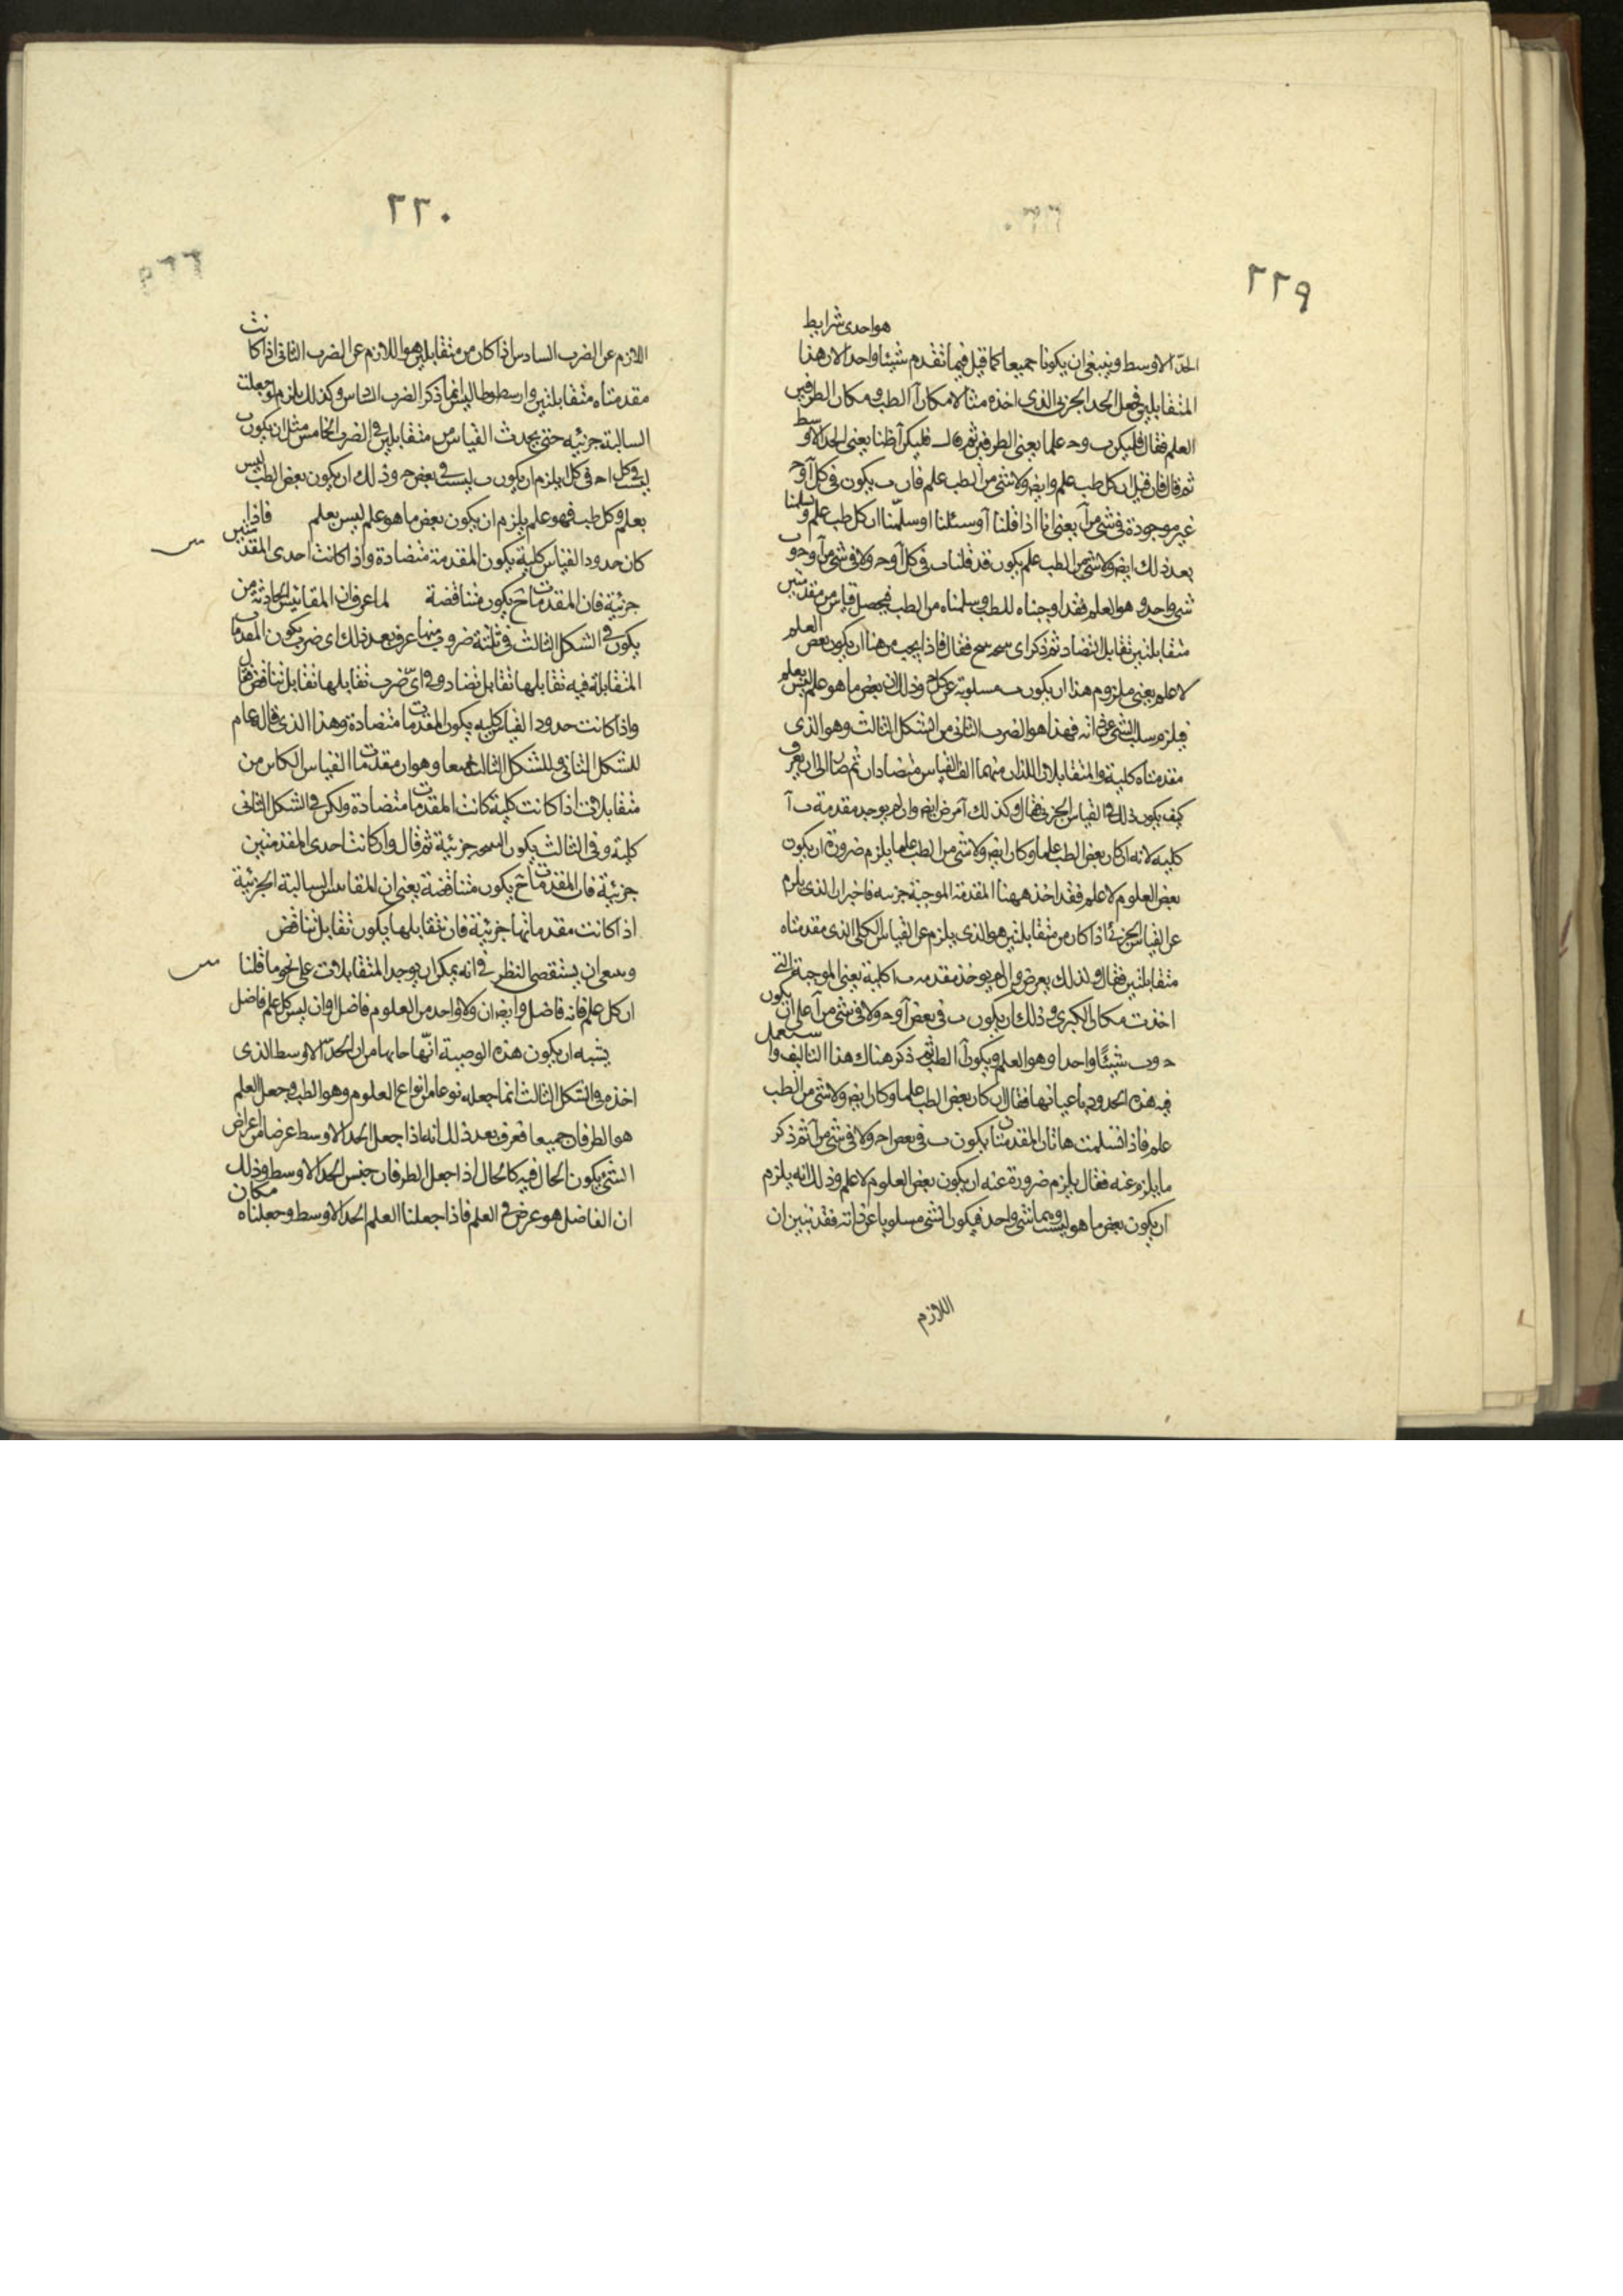 ٢٢٩
هو احدى شرايط
الحدّ الاوسط وينبغى ان يكونا جميعا كما قيل فيما تقدم شيئا واحدا لان هذا
المتقابلين فجعل الحد الجزئى الذى اخذه مثالا مكان آ الطب و مكان الطرفين
العلم فقال فليكن ب وحـ علما يعنى الطرفين ثم قال فليكن آ ظنا يعنى الحد الاوسط
ثم قال فان قيل ان كل طب علم وايضا ولا شئ من الطب علم فان ب يكون فى كل آ وحـ
غير موجودة فى شئ من آ يعنى انا اذا قلنا او سئلنا او سلّمنا ان كل طب علم وسلمنا
بعد ذلك ايضا ولا شئ من الطب علم يكون قد قلنا ب فى كل آ وحـ ولا فى شئ من آ وحـ وب
شئ واحد وهو العلم فقد اوجبناه للطب وسلبناه من الطب فيحصل قياس من مقدمتين
متقابلتين تقابل التضاد ثم ذكر اى فقال فاذا يجب من هذا ان يكون بعض العلم
لا علم يعنى ملزوم هذا ان يكون ب مسلوبة عن كل حـ وذلك ان بعض ما هو علم ليس بعلم
فيلزم سلب الشئ عن ذاته فهذا هو الضرب الثانى من الشكل الثالث وهو الذى
مقدمتاه كلية والمتقابلان اللذان منهما الف القياس متضادان ثم صار الى ان يعرف
كيف يكون ذلك فى القياس الجزئى فقال وكذلك آ من ايضا وان لم يوجد مقدمة ب آ
كلية لانه ان كان بعض الطب علما وكان ايضا ولا شئ من الطب علما يلزم ضرورة ان يكون
بعض العلوم لا علم فقد اخذ ههنا المقدمة الموجبة جزئية فاخبر ان الذى يلزم
عن القياس الجزئى اذا كان من متقابلتين هو الذى يلزم عن القياس الكلى الذى مقدمتاه
متقابلتين فقال ولذلك يعرض وان لم يوخذ مقدمة ب ا كلية يعنى الموجبة التى
اخذت مكان الكبرى وذلك ان يكون ب فى بعض آ وحـ ولا فى شئ من آ على ان يكون
حـ وب شيئًا واحدا وهو العلم ويكون آ الطب ثم ذكر هناك هذا التاليف واستعمل
فيه هذه الحدود باعيانها فقال ان كان بعض الطب علما وكان ايضا ولا شئ من الطب
علم فاذا تسلمت هاتان المقدمتان يكون ب فى بعض ا وحـ ولا فى شئ من آ ثم ذكر
ما يلزم عنه فقال يلزم ضرورة عنه ان يكون بعض العلوم لا علم وذلك انه يلزم
ان يكون بعض ما هو ليس وهما شئ واحد فيكون الشئ مسلوبا عن ذاته فقد تبين ان
اللازم
٢٢٠
اللازم عن الضرب السادس اذا كان من متقابلين هو اللازم عن الضرب الثانى اذا كانت
مقدمتاه متقابلتين وارسطوطاليس انما ذكر الضرب الخامس وكذلك يلزم لو جعلت
السالبة جزئية حتى يحدث القياس من متقابلين فى الضرب الخامس مثل ان يكون ب
ليس فى كل ا وحـ فى كل ا يلزم ان يكون ب ليست فى بعض حـ وذلك ان يكون بعض الطب ليس
بعلم وكل طب فهو علم يلزم ان يكون بعض ما هو علم ليس بعلم فاذا
كان حدود القياس كلية يكون المقدمة متضادة واذا كانت احدى المقدمتين
جزئية فان المقدمات حَ يكون متناقضة لما عرف ان المقاييس الحادثة من
يكون فى الشكل الثالث فى ثلثة ضروب منها عرف بعد ذلك اى ضرب يكون المقدمات
المتقابلة فيه تقابلها تقابل تضاد وفى اىّ ضرب تقابلها تقابل تناقض فقال
واذا كانت حدود القياس كلية يكون المقدمات متضادة وهذا الذى قاله عام
للشكل الثانى وللشكل الثالث جميعا وهو ان مقدمات القياس الكاين من
متقابلات اذا كانت كلية كانت المقدمات متضادة ولكن فى الشكل الثانى
كلية وفى الثالث يكون النتيجة جزئية ثم قال وان كانت احدى المقدمتين
جزئية فان المقدمات حَ يكون متناقضة يعنى ان المقاييس السالبة الجزئية
اذا كانت مقدماتها جزئية فان تقابلها يكون تقابل تناقض
وينبغى ان يستقصى النظر فى انه يمكن ان يوجد المتقابلات على نحو ما قلنا
ان كل علم فانه فاضل وايضا ان ولا واحد من العلوم فاضل او ان ليس كل علم فاضل
يشبه ان يكون هذه الوصية انّها من ان الحدّ الاوسط الذى
اخذه فى الشكل الثالث انما جعله نوعا من انواع العلوم وهو الطب وجعل العلم
هو الطرفان جميعا فعرف بعد ذلك انه اذا جعل الحد الاوسط عرضا من اعراض
الشئ يكون الحال فيه كالحال اذا جعل الطرفان جنس الحد الاوسط وذلك
ان الفاضل هو عرض فى العلم فاذا جعلنا العلم الحد الاوسط وجعلناه مكان